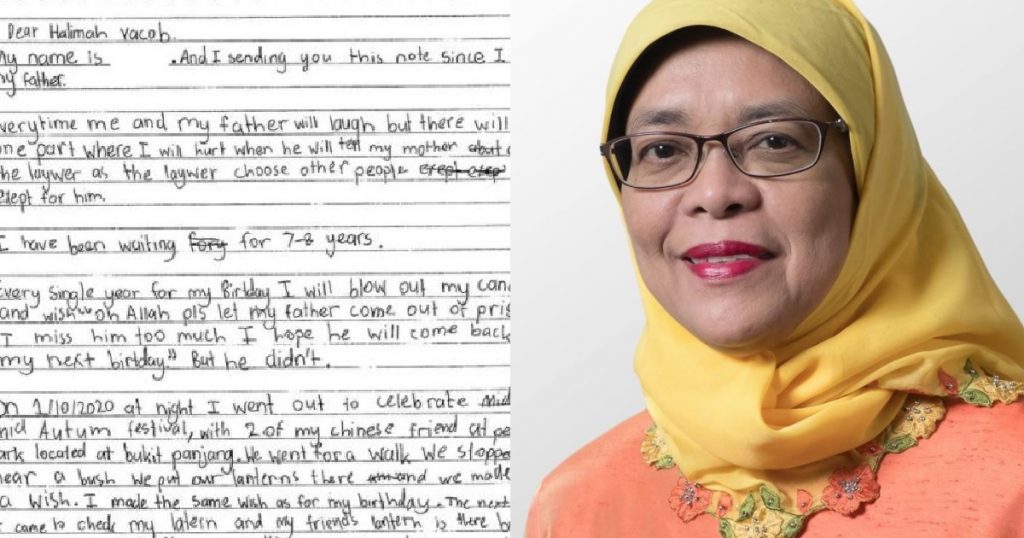 Dear Halimah Yacob.
My name is .And I sending you this note since I
my father.
verytime me and my father will laugh but there will
one part where I will hurt when he will tell my mother
the laywer as the laywer choose other people
exept for him.
I have been waiting for 7-8 years.
Every single year for my Birtday I will blow out my can
and wish " oh Allah pls let my father come out of pris
I miss him too much I hope he will come back
my next birtday" But he didn't.
On 1/10/2020 at night I went out to celebrate mid
mid Autum festival, with 2 of my chinese friend at pe
ark located at bukit panjang. We went for a walk we stoppe
near a bush we put our lanterns there and we made
a wish. I made the same wish as for my birthday. The next
I came to check my latern and my friends lantern is there b